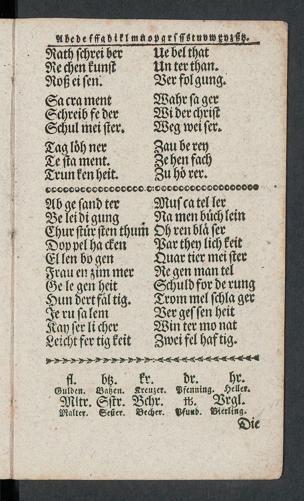 Abcdefffghiklmnopqrſſstuvwxyzßtz.
Rath schrei ber
Re chen kunst
Roß ei sen.
Sa cra ment
Schreib fe der
Schul mei ster.
Tag löh ner
Te sta ment.
Trun ken heit.
Ue bel that
Un ter than.
Ver fol gung.
Wahr sa ger
Wi der christ
Weg wei ser.
Zau be rey
Ze hen fach
Zu hö rer.
Ab ge sand ter
Be lei di gung
Chur für sten thum
Dop pel ha cken
El len bo gen
Frau en zim mer
Ge le gen heit
Hun dert fäl tig.
Je ru sa lem
Kay ser li cher
Leicht fer tig keit
Mus ca tel ler
Na men büch lein
Oh ren blä ser
Par they lich keit
Quar tier mei ster
Re gen man tel
Schuld for de rung
Trom mel schla ger
Ver ges sen heit
Win ter mo nat
Zwei fel haf tig.
fl. btz. kr. dr. hr.
Gulden. Batzen. Kreuzer. Pfenning. Heller.
Mltr. Sstr. Bchr. ℔. Vrgl.
Malter. Sester. Becher. Pfund. Vierling.
Die